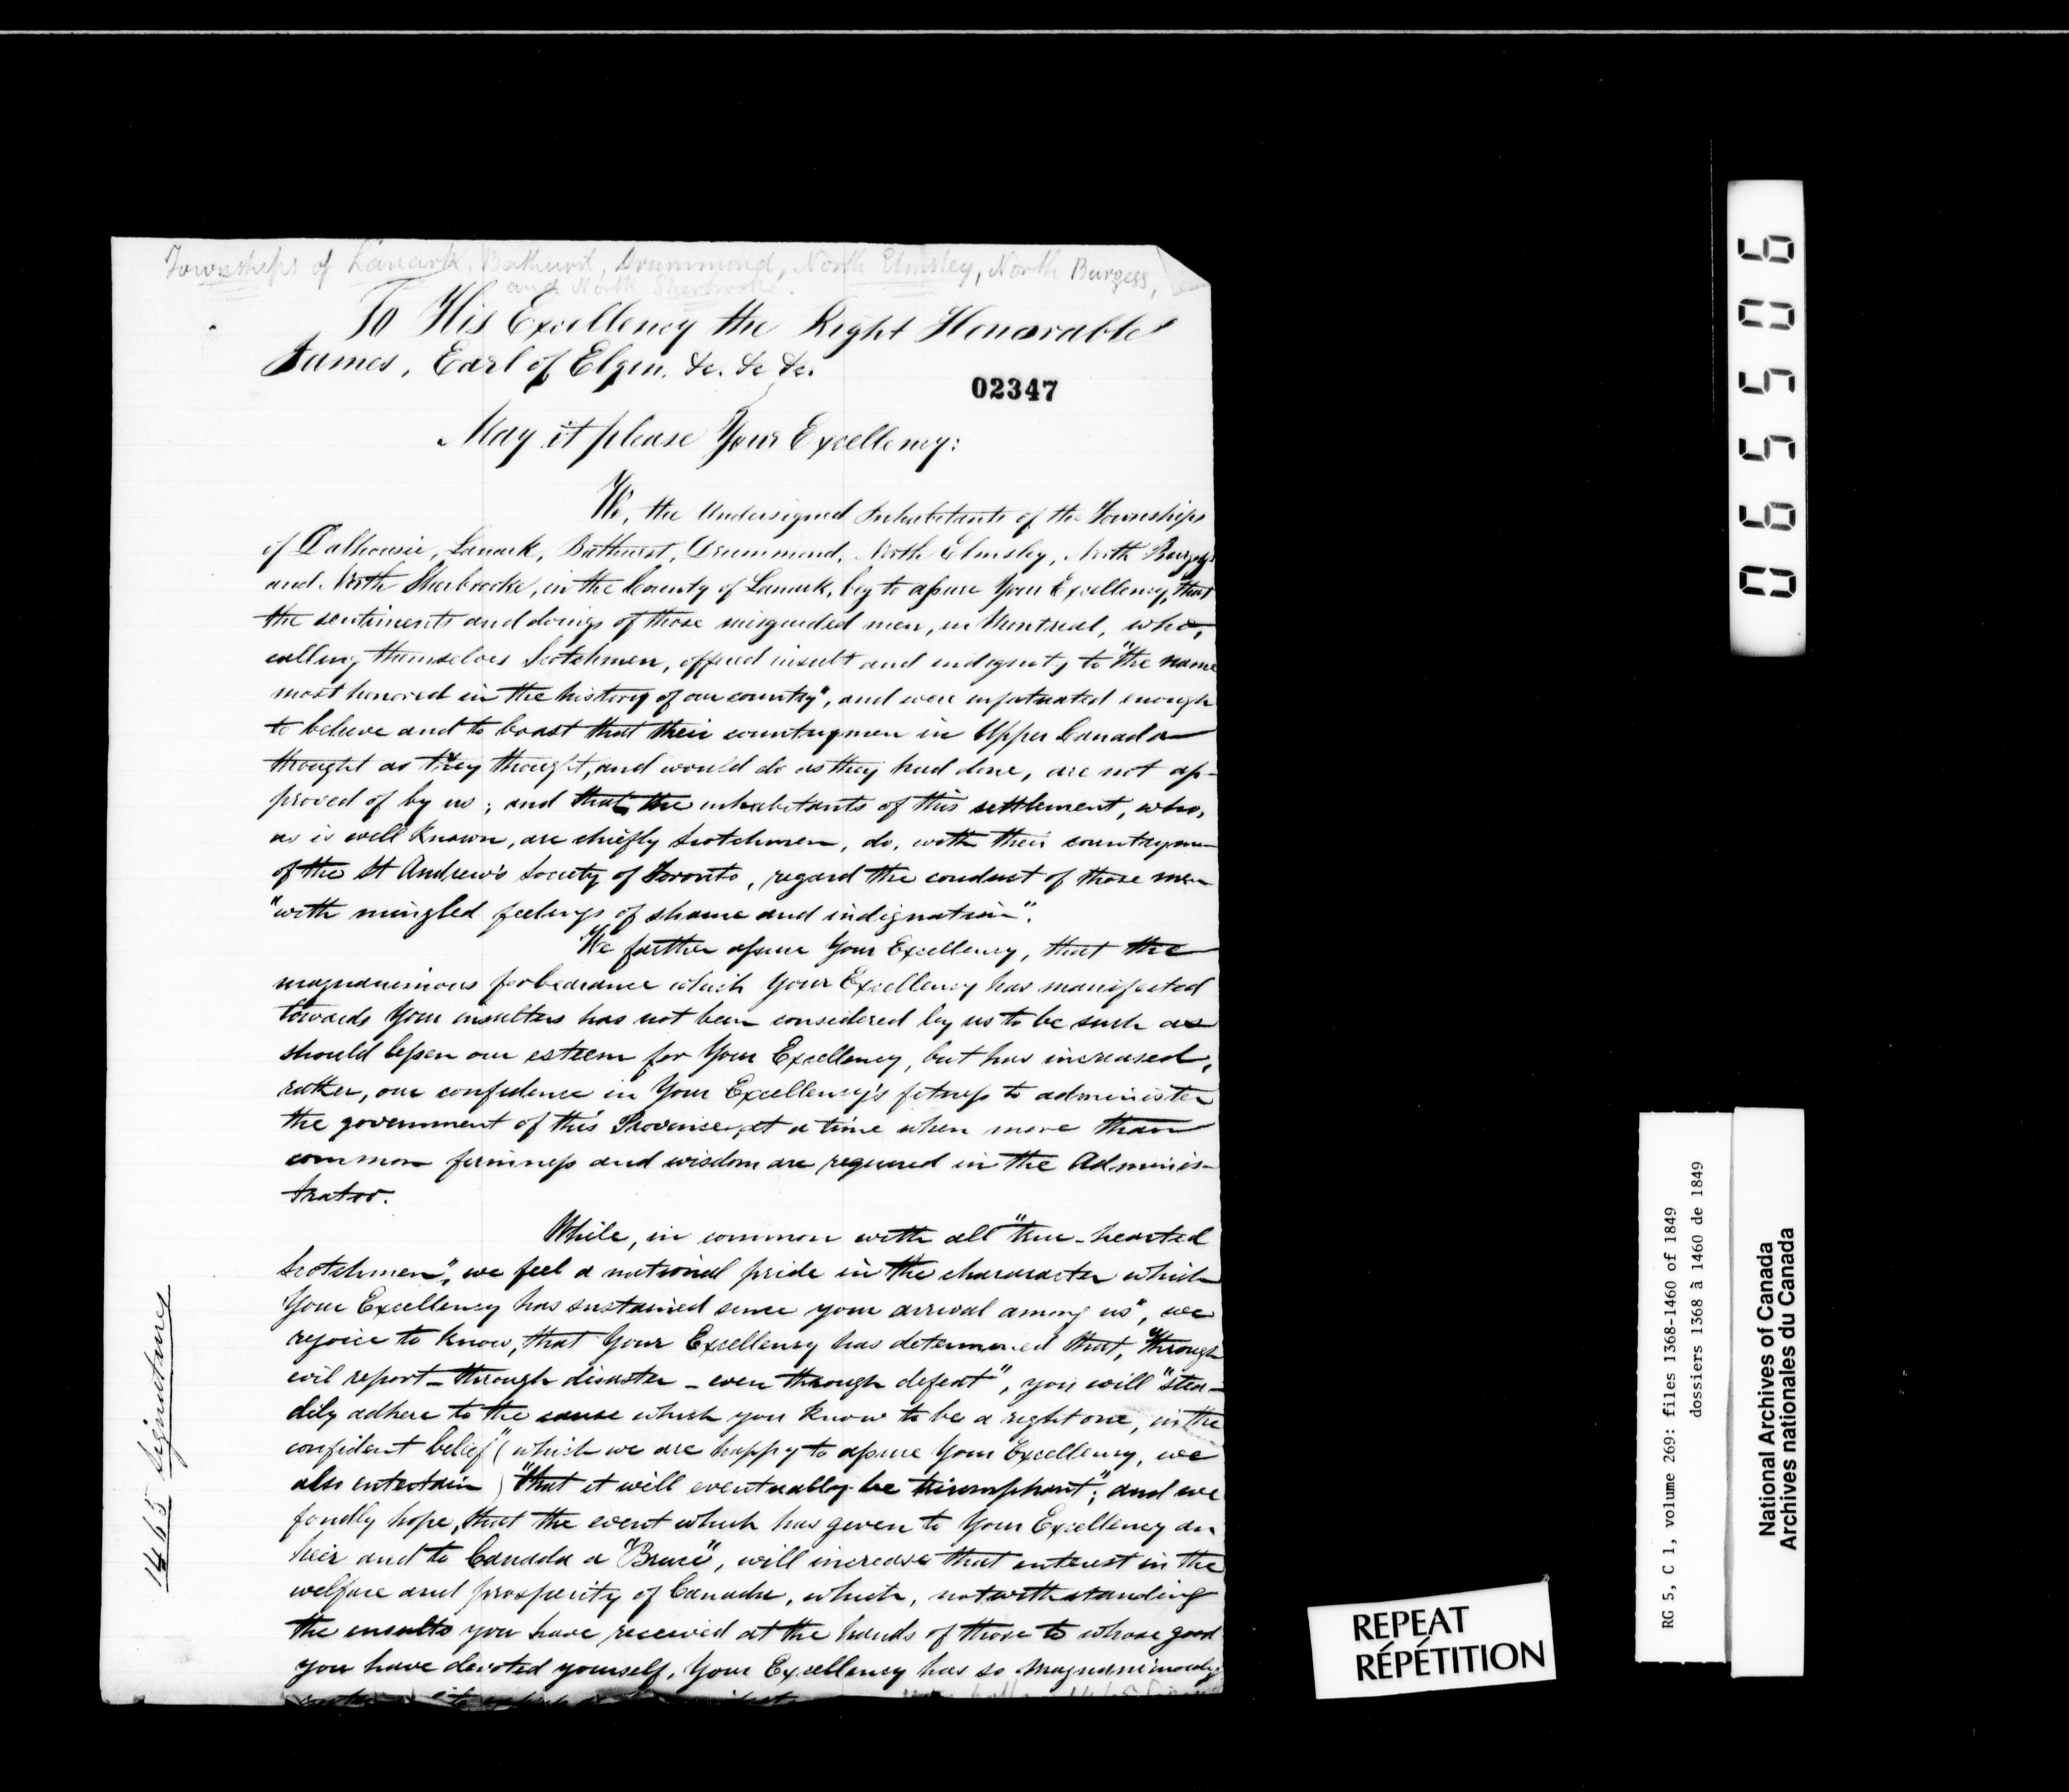 Townships of Lanark, Bathurst, Drummond, North Elmsley, North Burgess,
and North Sherbrooke.
To His Excellency the Right Honorable
James, Earl of Elgin, &c. &c &c.
02347
May it please Your Excellency:
We, the Undersigned Inhabitants of the Townships
of Dalhousie, Lanark, Bathurst, Drummond, North Elmsley, North Burgess
and North Sherbrooke, in the County of Lanark, beg to assure Your Excellency, that
the sentiments and doings of those misguided men, in Montreal, who,
calling themselves Scotchmen, offered insult and indignity to "the name
most honored in the history of our country", and were infatuated enough
to believe and to boast that their countrymen in Upper Canada
thought as they thought, and would do as they had done, are not ap-
proved of by us; and that the inhabitants of this settlement, who,
as is well known, are chiefly Scotchmen, do, with their countrymen
of the St Andrew's Society of Toronto, regard the conduct of those men
"with mingled feelings of shame and indignation".
We further assure Your Excellency, that the
magnanimous forbearance which Your Excellency has manifested
towards Your insulters has not been considered by us to be such as
should lessen our esteem for Your Excellency, but has increased,
rather, our confidence in Your Excellency's fitness to administer
the government of this Province, at a time when more than
common firmness and wisdom are required in the Adminis-
trator.
While, in common with all "true-hearted
Scotchmen", we feel a national pride in the chararacter which
Your Excellency has sustained since your arrival among us", we
rejoice to know, that Your Excellency has determined that, "through
evil report - through disaster - even through defeat", you will "stea-
dily adhere to the cause which you know to be a right one, in the
confident belief" (which we are happy to assure Your Excellency, we
also entertain) "that it will eventually be triumphant"; and we
fondly hope, that the event which has given to Your Excellency an
heir and to Canada a "Bruce", will increase that interest in the
welfare and prosperity of Canada, which, notwithstanding
the insults you have received at the hands of those to whose good
you have devoted yourself, Your Excellency has so magnanimously
1465 Signatures
065506
REPEAT
RÉPÉTITION
RG 5, C 1, volume 269: files 1368-1460 of 1849
dossiers 1368 à 1460 de 1849
National Archives of Canada
Archives nationales du Canada